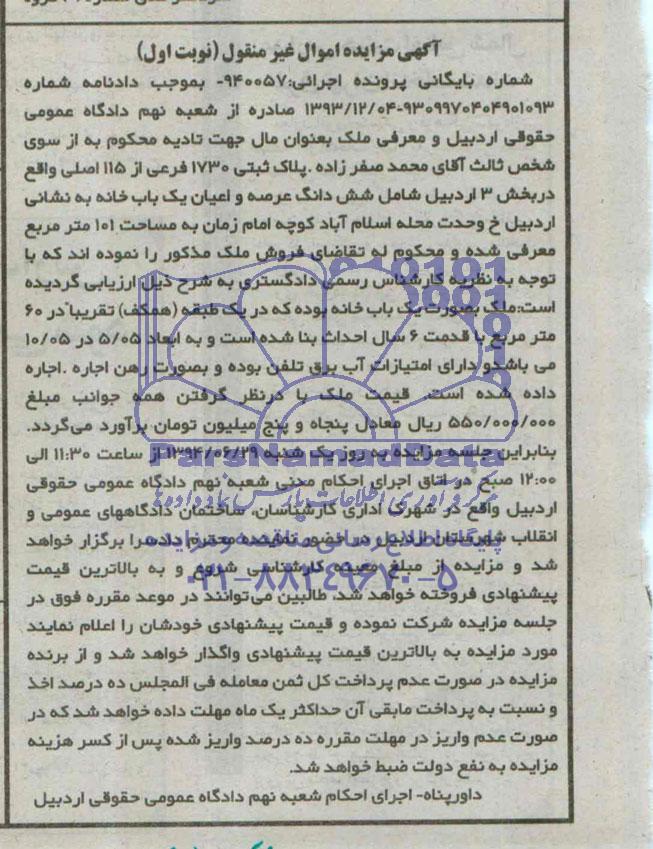 آگهی مزایده اموال غیر منقول (نوبت اول)
شماره بایگانی پرونده اجرائی:۹۴۰۰۵۷- بموجب دادنامه شماره
۹۳۰۹۹۷۰۴۰۴۹۰۱۰۹۳-۱۳۹۳/۱۲/۰۴ صادره از شعبه نهم دادگاه عمومی
حقوقی اردبیل و معرفی ملک بعنوان مال جهت تادیه محکوم به از سوی
شخص ثالث آقای محمد صفر زاده .پلاک ثبتی ۱۷۳۰ فرعی از ۱۱۵ اصلی واقع
دربخش ۳ اردبیل شامل شش دانگ عرصه و اعیان یک باب خانه به نشانی
اردبیل خ وحدت محله اسلام آباد کوچه امام زمان به مساحت ۱۰۱ متر مربع
معرفی شده و محکوم له تقاضای فروش ملک مذکور را نموده اند که با
توجه به نظریه کارشناس رسمی دادگستری به شرح ذیل ارزیابی گردیده
است:ملک بصورت یک باب خانه بوده که در یک طبقه (همکف) تقریبا در ۶۰
متر مربع با قدمت ۶ سال احداث بنا شده است و به ابعاد ۵/۰۵ در ۱۰/۰۵
می باشد و دارای امتیازات آب برق تلفن بوده و بصورت رهن اجاره .اجاره
داده شده است. قیمت ملک با درنظر گرفتن همه جوانب مبلغ
۵۵۰/۰۰۰/۰۰۰ ریال معادل پنجاه و پنج میلیون تومان برآورد می‌گردد.
بنابراین جلسه مزایده به روز یک شنبه ۱۳۹۴/۰۶/۲۹ از ساعت ۱۱:۳۰ الی
۱۲:۰۰ صبح در اتاق اجرای احکام مدنی شعبه نهم دادگاه عمومی حقوقی
اردبیل واقع در شهرک اداری کارشناسان، ساختمان دادگاههای عمومی و
انقلاب شهرستان اردبیل در حضور نماینده محترم دادسرا برگزار خواهد
شد و مزایده از مبلغ معینه کارشناسی شروع و به بالاترین قیمت
پیشنهادی فروخته خواهد شد. طالبین می‌توانند در موعد مقرره فوق در
جلسه مزایده شرکت نموده و قیمت پیشنهادی خودشان را اعلام نمایند
مورد مزایده به بالاترین قیمت پیشنهادی واگذار خواهد شد و از برنده
مزایده در صورت عدم پرداخت کل ثمن معامله فی المجلس ده درصد اخذ
و نسبت به پرداخت مابقی آن حداکثر یک ماه مهلت داده خواهد شد که در
صورت عدم واریز در مهلت مقرره ده درصد واریز شده پس از کسر هزینه
مزایده به نفع دولت ضبط خواهد شد.
داورپناه- اجرای احکام شعبه نهم دادگاه عمومی حقوقی اردبیل
ParsNamadData
مرکز فرآوری اطلاعات پارس نماد داده‌ها
پایگاه اطلاع رسانی مناقصه و مزایده
۰۲۱-۸۸۳۴۹۶۷۰-۵